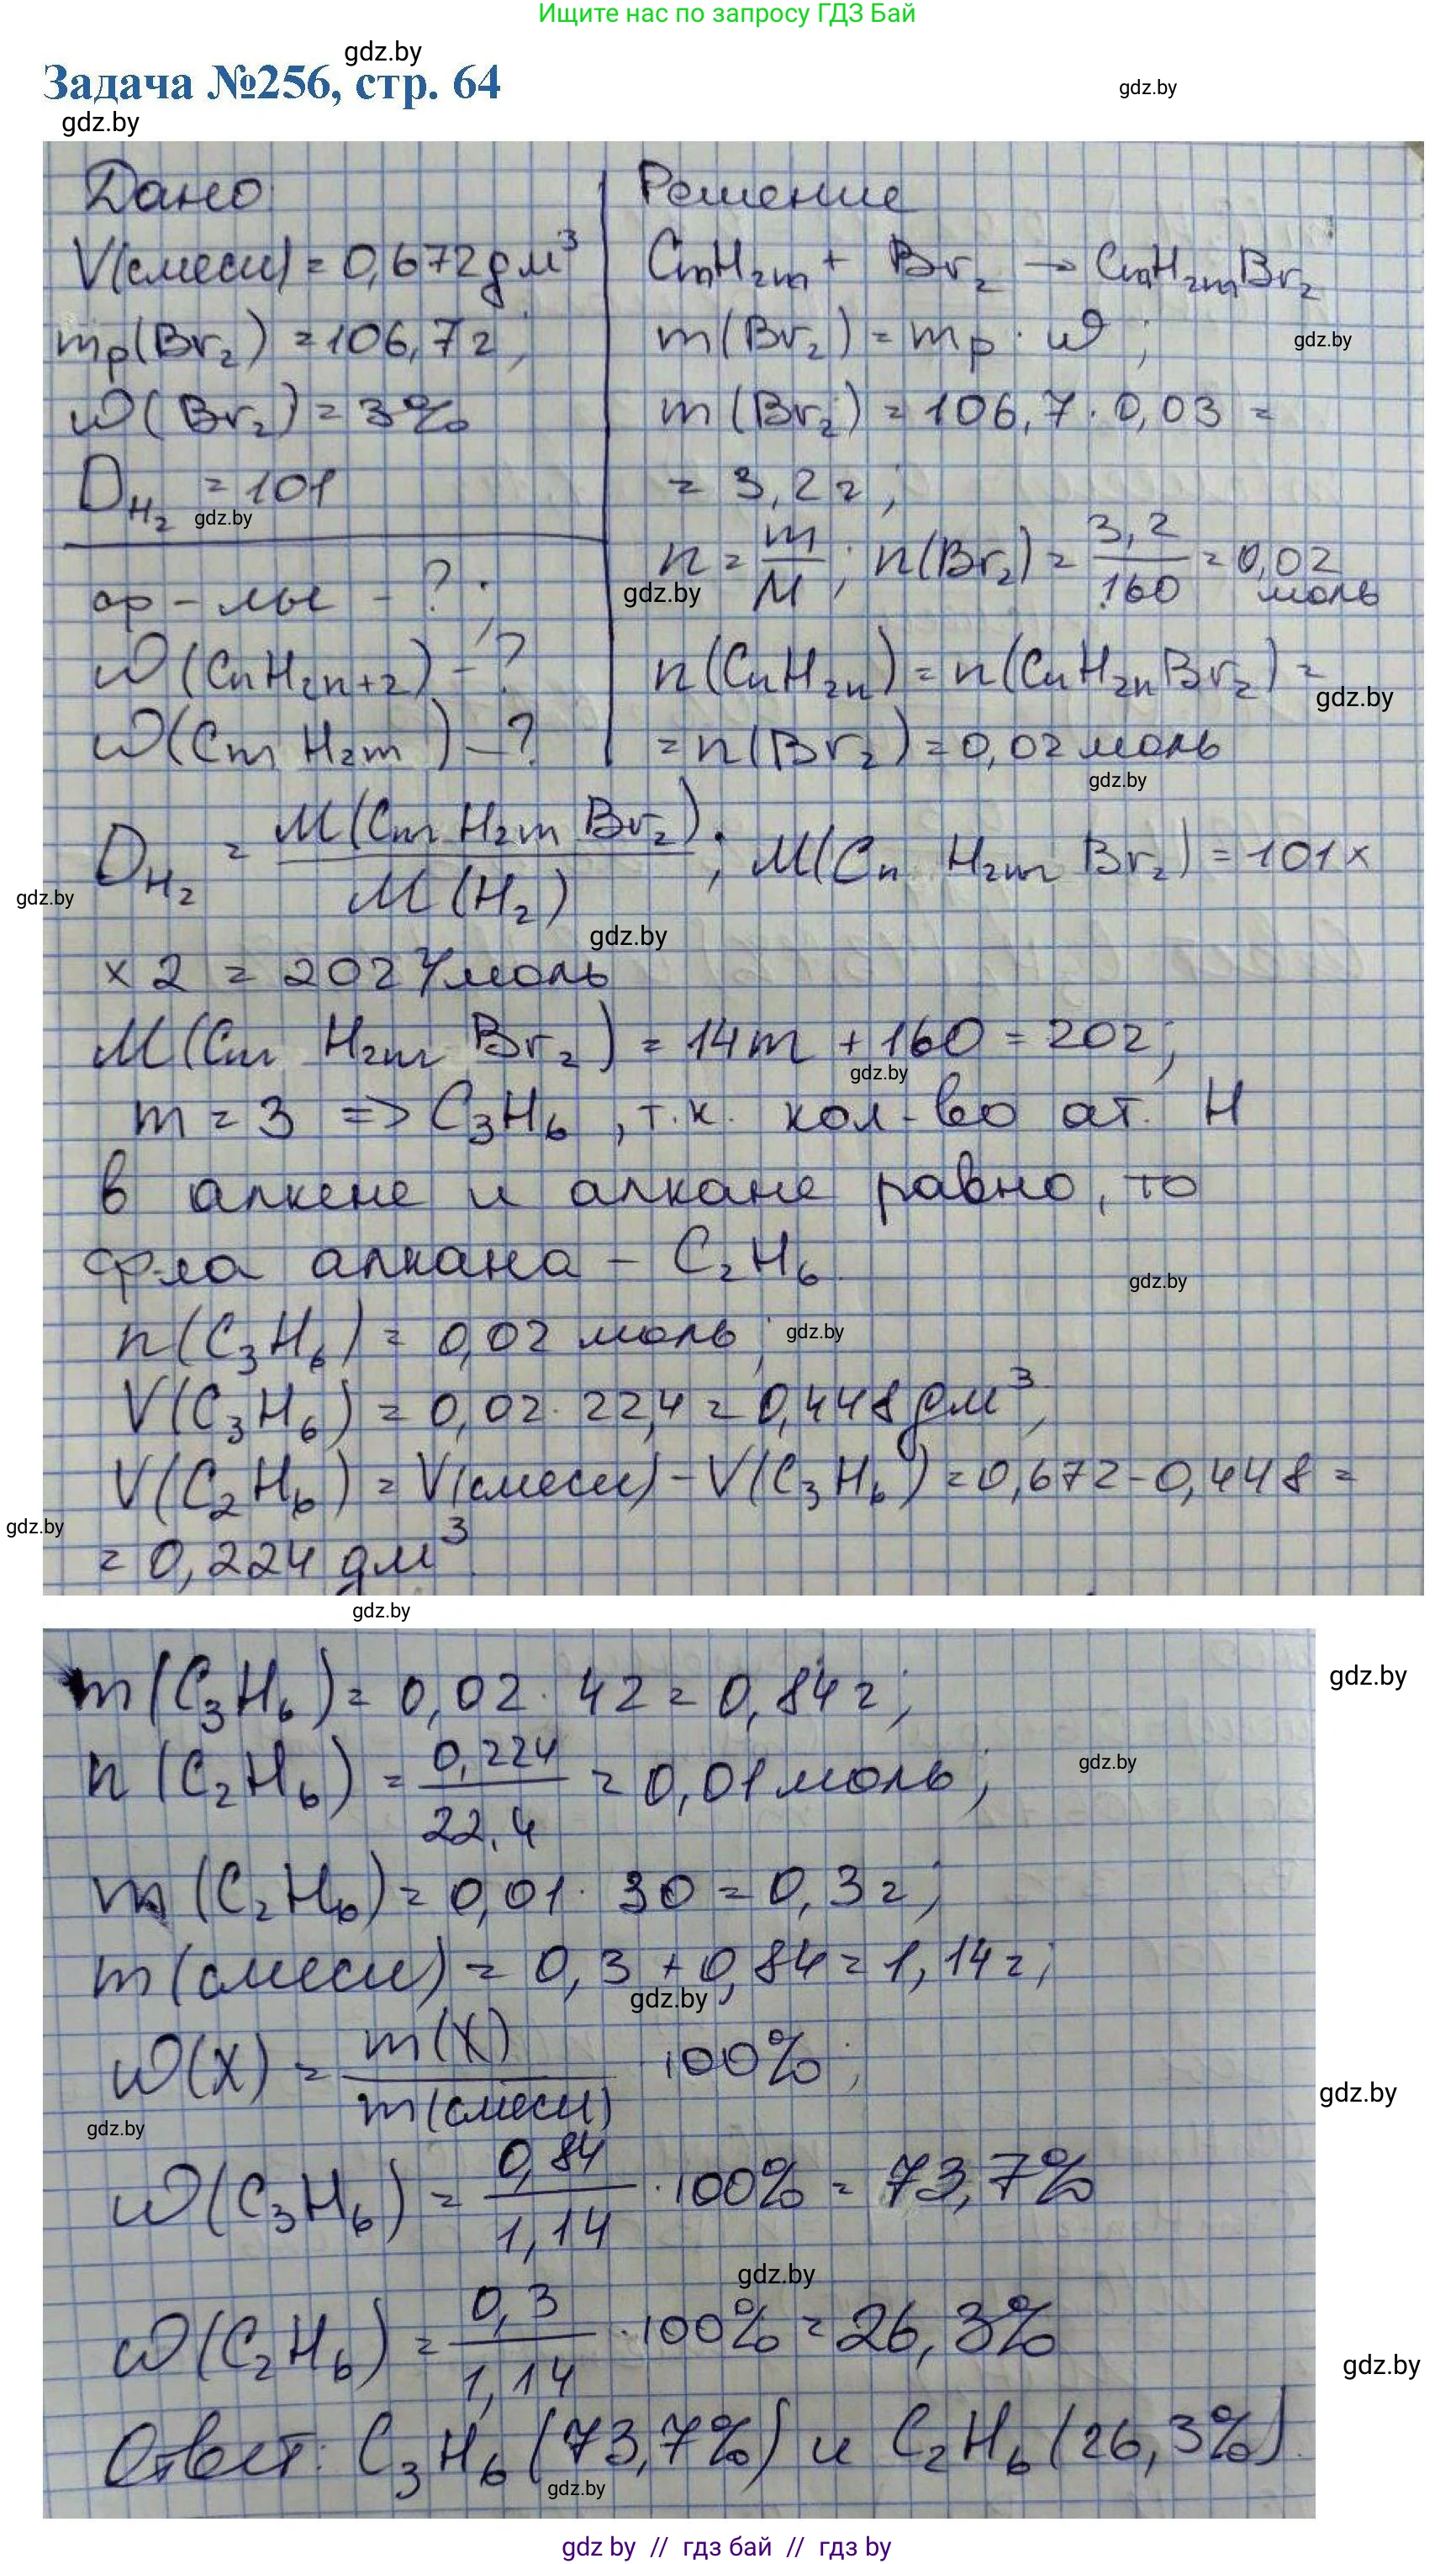 Ищите нас по запросу ГДЗ Бай
gdz.by
Задача №256, стр. 64
gdz.by
gdz.by
Дано
V(смеси) = 0,672 дм³
mр(Br₂) = 106,7 г;
ω(Br₂) = 3%
D_H₂ = 101
gdz.by
ф-лы - ?
ω(CnH₂n+₂) - ?
ω(CmH₂m) - ?
Решение
CmH₂m + Br₂ → CmH₂mBr₂
m(Br₂) = mр · ω;
gdz.by
m(Br₂) = 106,7 · 0,03 =
= 3,2 г;
n = m/M; n(Br₂) = 3,2/160 = 0,02 моль
gdz.by
n(CnH₂n) = n(CnH₂nBr₂) =
gdz.by
= n(Br₂) = 0,02 моль
gdz.by
D_H₂ = M(CmH₂mBr₂)/M(H₂); M(CnH₂mBr₂) = 101 ×
gdz.by
gdz.by
× 2 = 202 г/моль
M(CmH₂mBr₂) = 14m + 160 = 202;
gdz.by
m = 3 => C₃H₆, т.к. кол-во ат. H
в алкене и алкане равно, то
ф-ла алкана - C₂H₆.
gdz.by
n(C₃H₆) = 0,02 моль;
gdz.by
V(C₃H₆) = 0,02 · 22,4 = 0,448 дм³;
V(C₂H₆) = V(смеси) - V(C₃H₆) = 0,672 - 0,448 =
gdz.by
= 0,224 дм³.
gdz.by
m(C₃H₆) = 0,02 · 42 = 0,84 г;
gdz.by
n(C₂H₆) = 0,224/22,4 = 0,01 моль;
gdz.by
m(C₂H₆) = 0,01 · 30 = 0,3 г;
m(смеси) = 0,3 + 0,84 = 1,14 г;
gdz.by
ω(X) = m(X)/m(смеси) · 100%;
gdz.by
gdz.by
ω(C₃H₆) = 0,84/1,14 · 100% = 73,7%
gdz.by
ω(C₂H₆) = 0,3/1,14 · 100% = 26,3%
gdz.by
Ответ: C₃H₆ (73,7%) и C₂H₆ (26,3%).
gdz.by
gdz by // гдз бай // гдз by